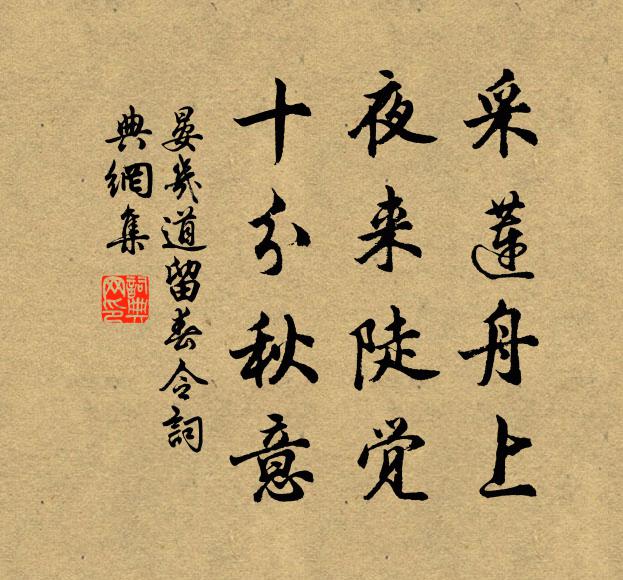 采蓮舟上
夜来陡觉
十分秋意
晏幾道留春令詞
典網集
詞典网印